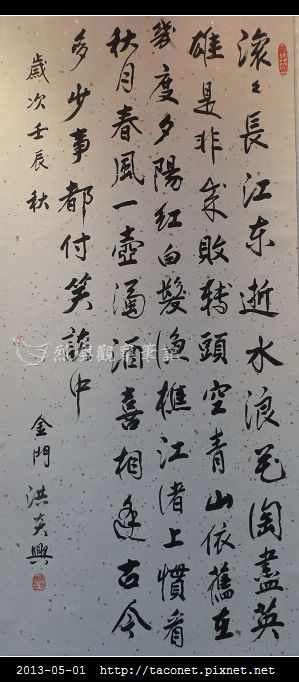 滾々長江東逝水浪花淘盡英
雄是非成敗轉頭空青山依舊在
幾度夕陽紅白髮漁樵江渚上慣看
秋月春風一壺濁酒喜相逢古今
多少事都付笑談中
歲次壬辰秋
金門 洪英興
烈嶼觀察筆記
2013-05-01 http://taconet.pixnet.net